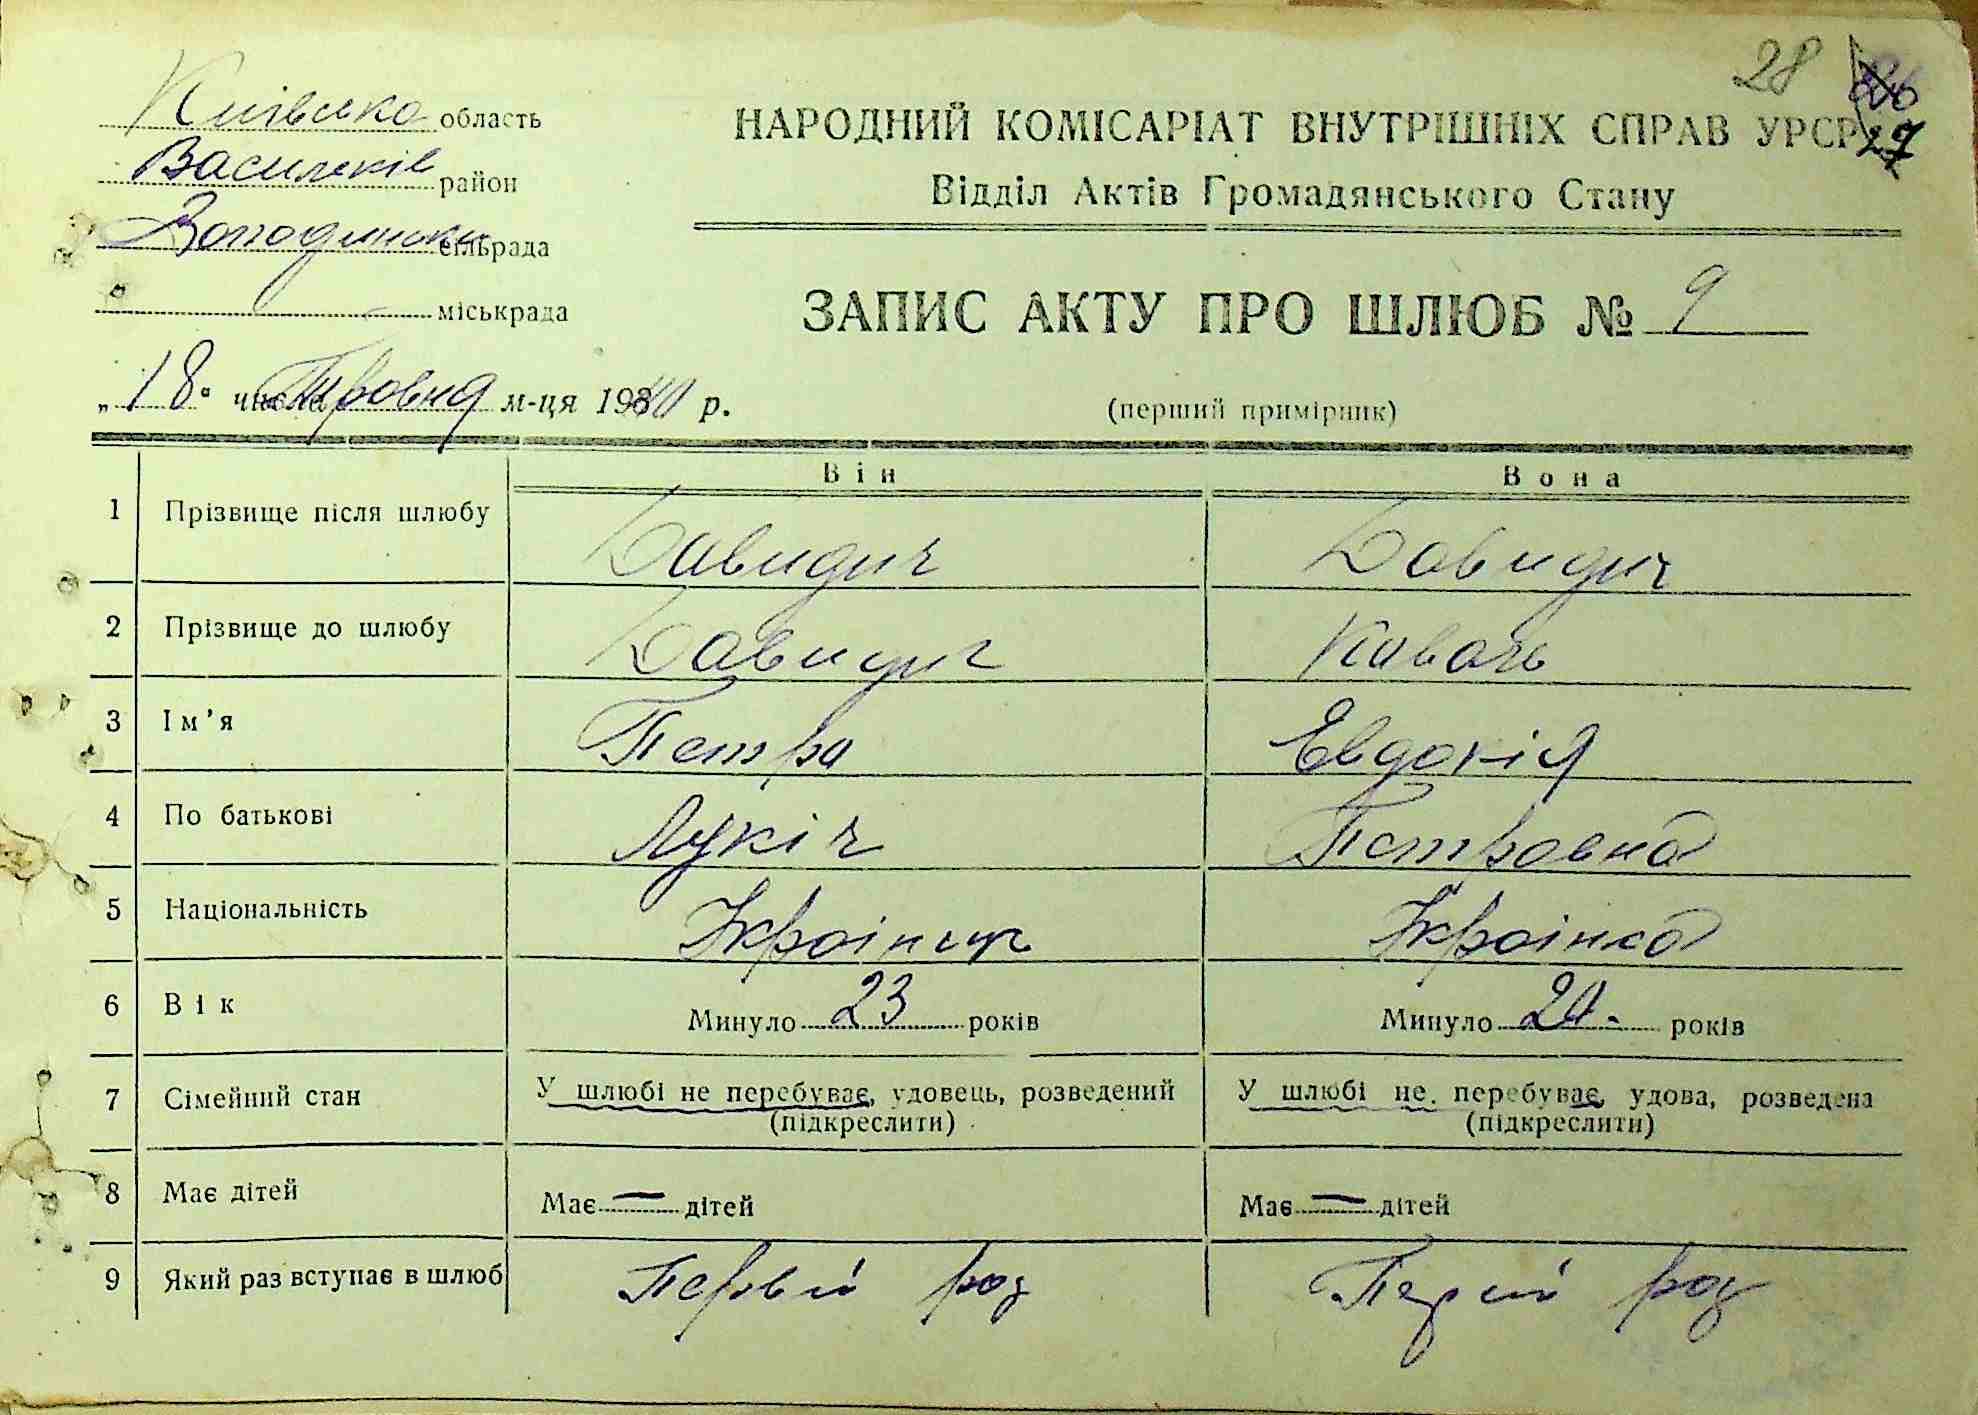 28
27
Київська область
НАРОДНИЙ КОМІСАРІАТ ВНУТРІШНІХ СПРАВ УРСР
Васильків район
Відділ Актів Громадянського Стану
сільрада
міськрада
ЗАПИС АКТУ ПРО ШЛЮБ № 9
„18“ числа Травня м-ця 1940 р.
(перший примірник)
Він Вона
1 Прізвище після шлюбу Давидич Давидич
2 Прізвище до шлюбу Давидич Коваль
3 Ім’я Петро Евдокія
4 По батькові Лукіч Петровна
5 Національність Українец Українка
6 Вік Минуло 23 років Минуло 20. років
7 Сімейний стан У шлюбі не перебуває, удовець, розведений У шлюбі не перебуває, удова, розведена
(підкреслити) (підкреслити)
8 Має дітей Має — дітей Має — дітей
9 Який раз вступає в шлюб Первий раз Перший раз